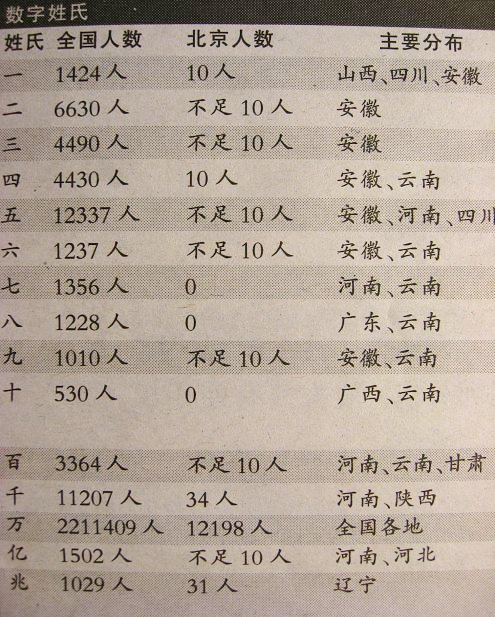 数字姓氏
姓氏 全国人数 北京人数 主要分布
一 1424人 10人 山西、四川、安徽
二 6630人 不足10人 安徽
三 4490人 不足10人 安徽
四 4430人 10人 安徽、云南
五 12337人 不足10人 安徽、河南、四川
六 1237人 不足10人 安徽、云南
七 1356人 0 河南、云南
八 1228人 0 广东、云南
九 1010人 不足10人 安徽、云南
十 530人 0 广西、云南
百 3364人 不足10人 河南、云南、甘肃
千 11207人 34人 河南、陕西
万 2211409人 12198人 全国各地
亿 1502人 不足10人 河南、河北
兆 1029人 31人 辽宁